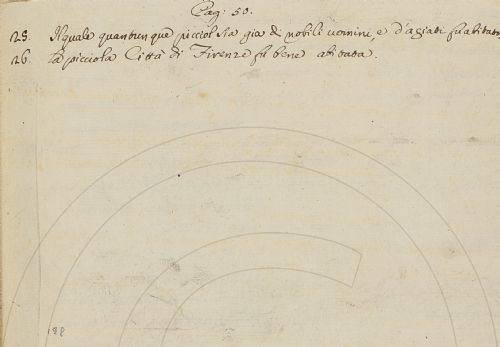 Pag: 50.
25. Il quale quantunque picciol sia già di nobili uomini, e d'agiati fu abitato,
26. la picciola Città di Firenze fù bene abitata.